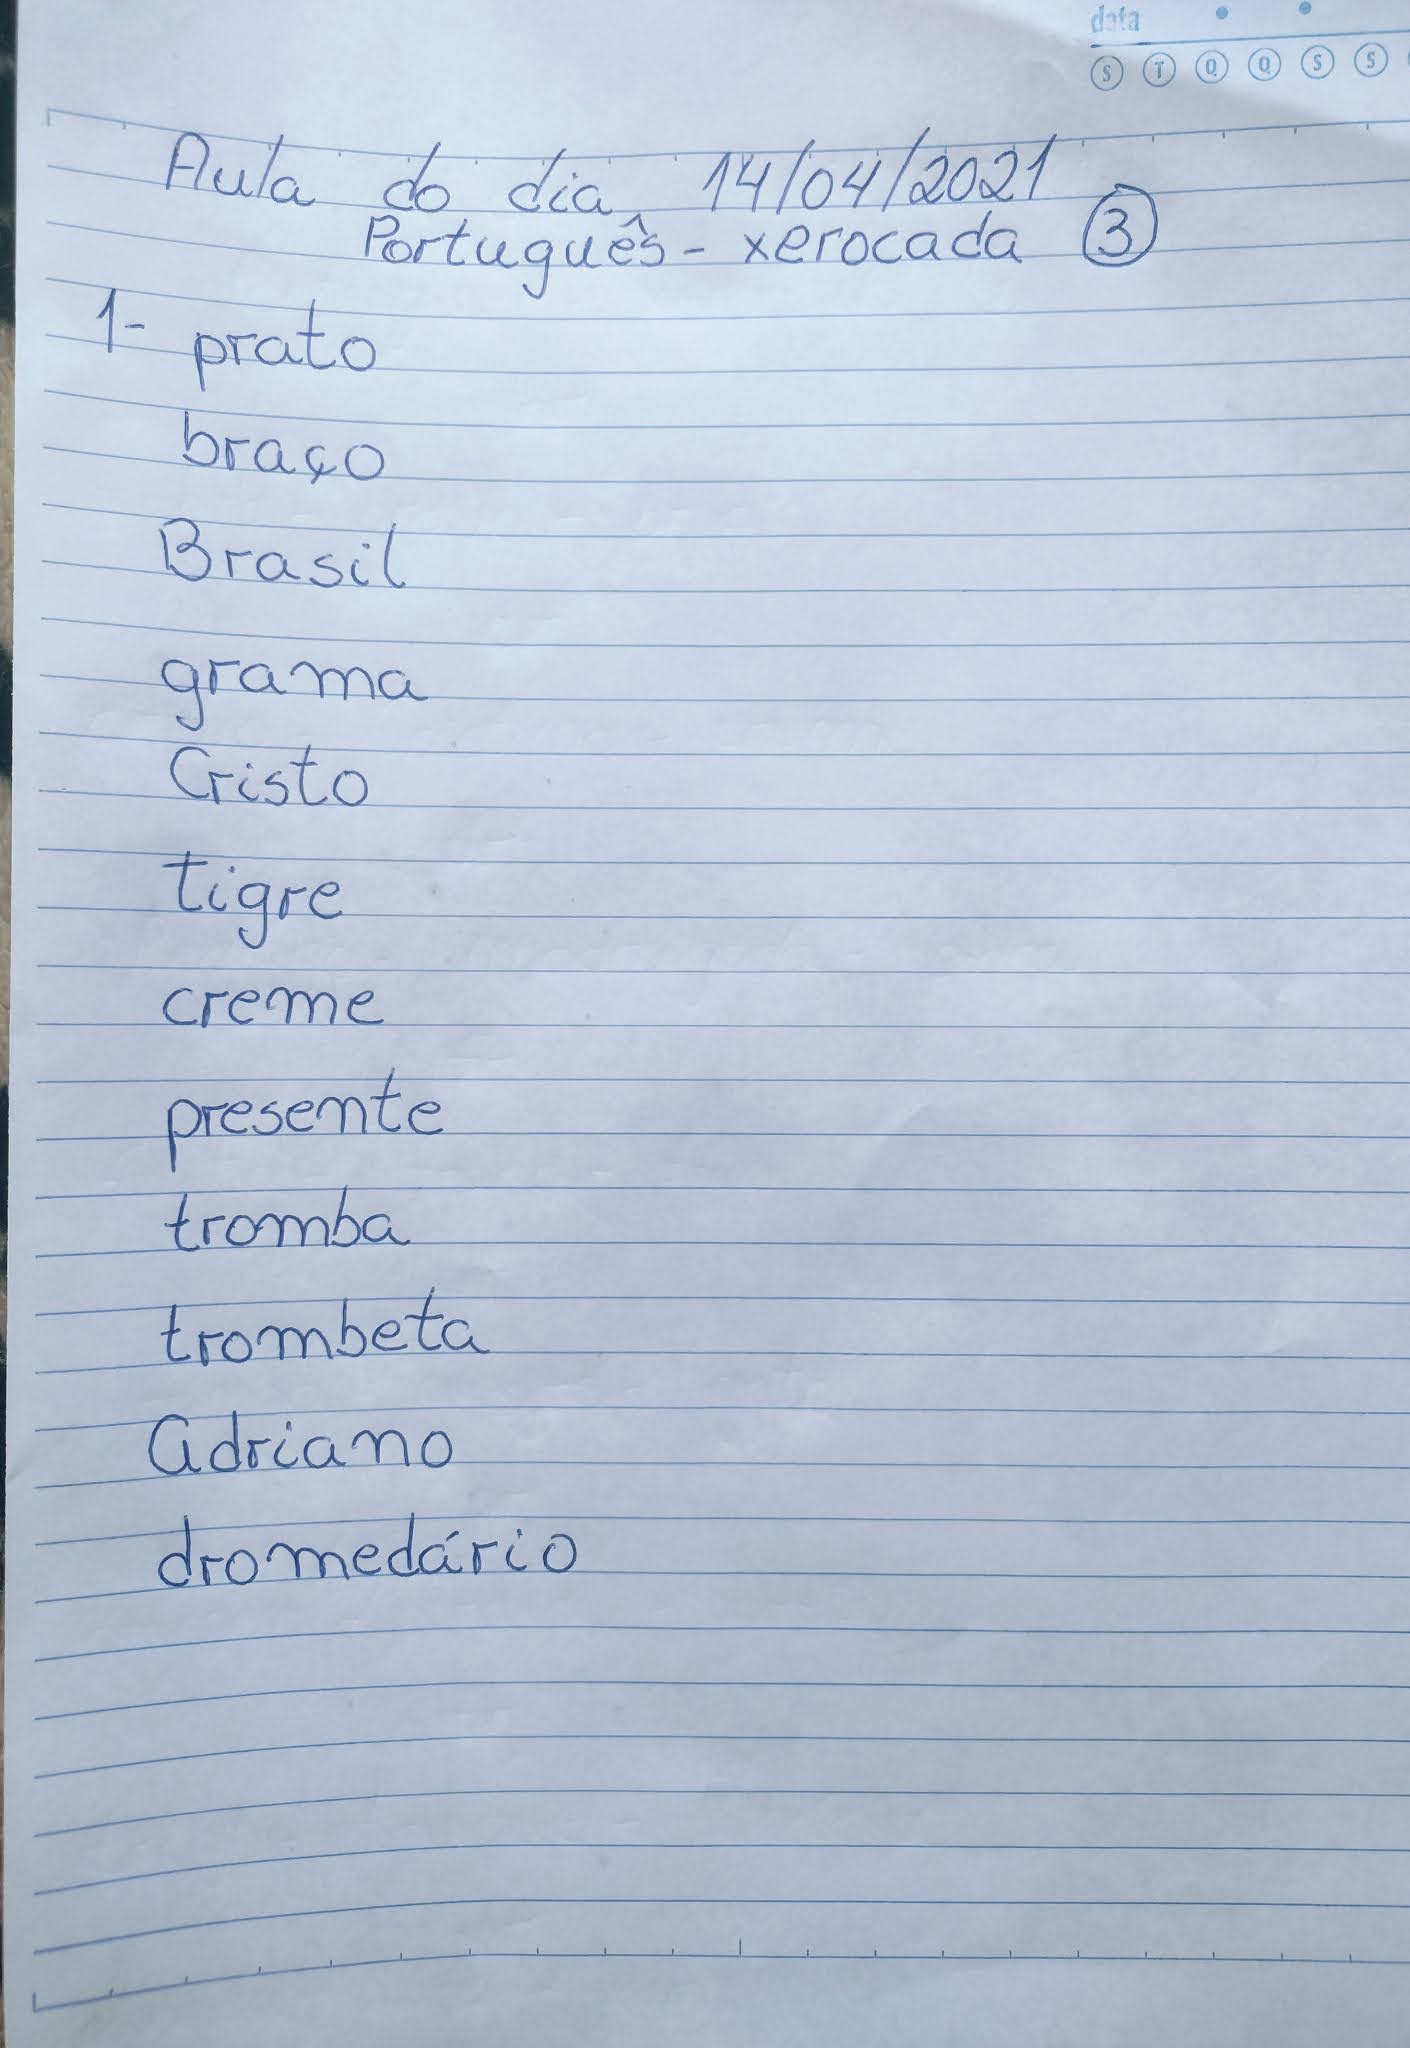 data
S T Q Q S S
Aula do dia 14/04/2021
Português - xerocada 3
1- prato
braço
Brasil
grama
Cristo
tigre
creme
presente
tromba
trombeta
Adriano
dromedário